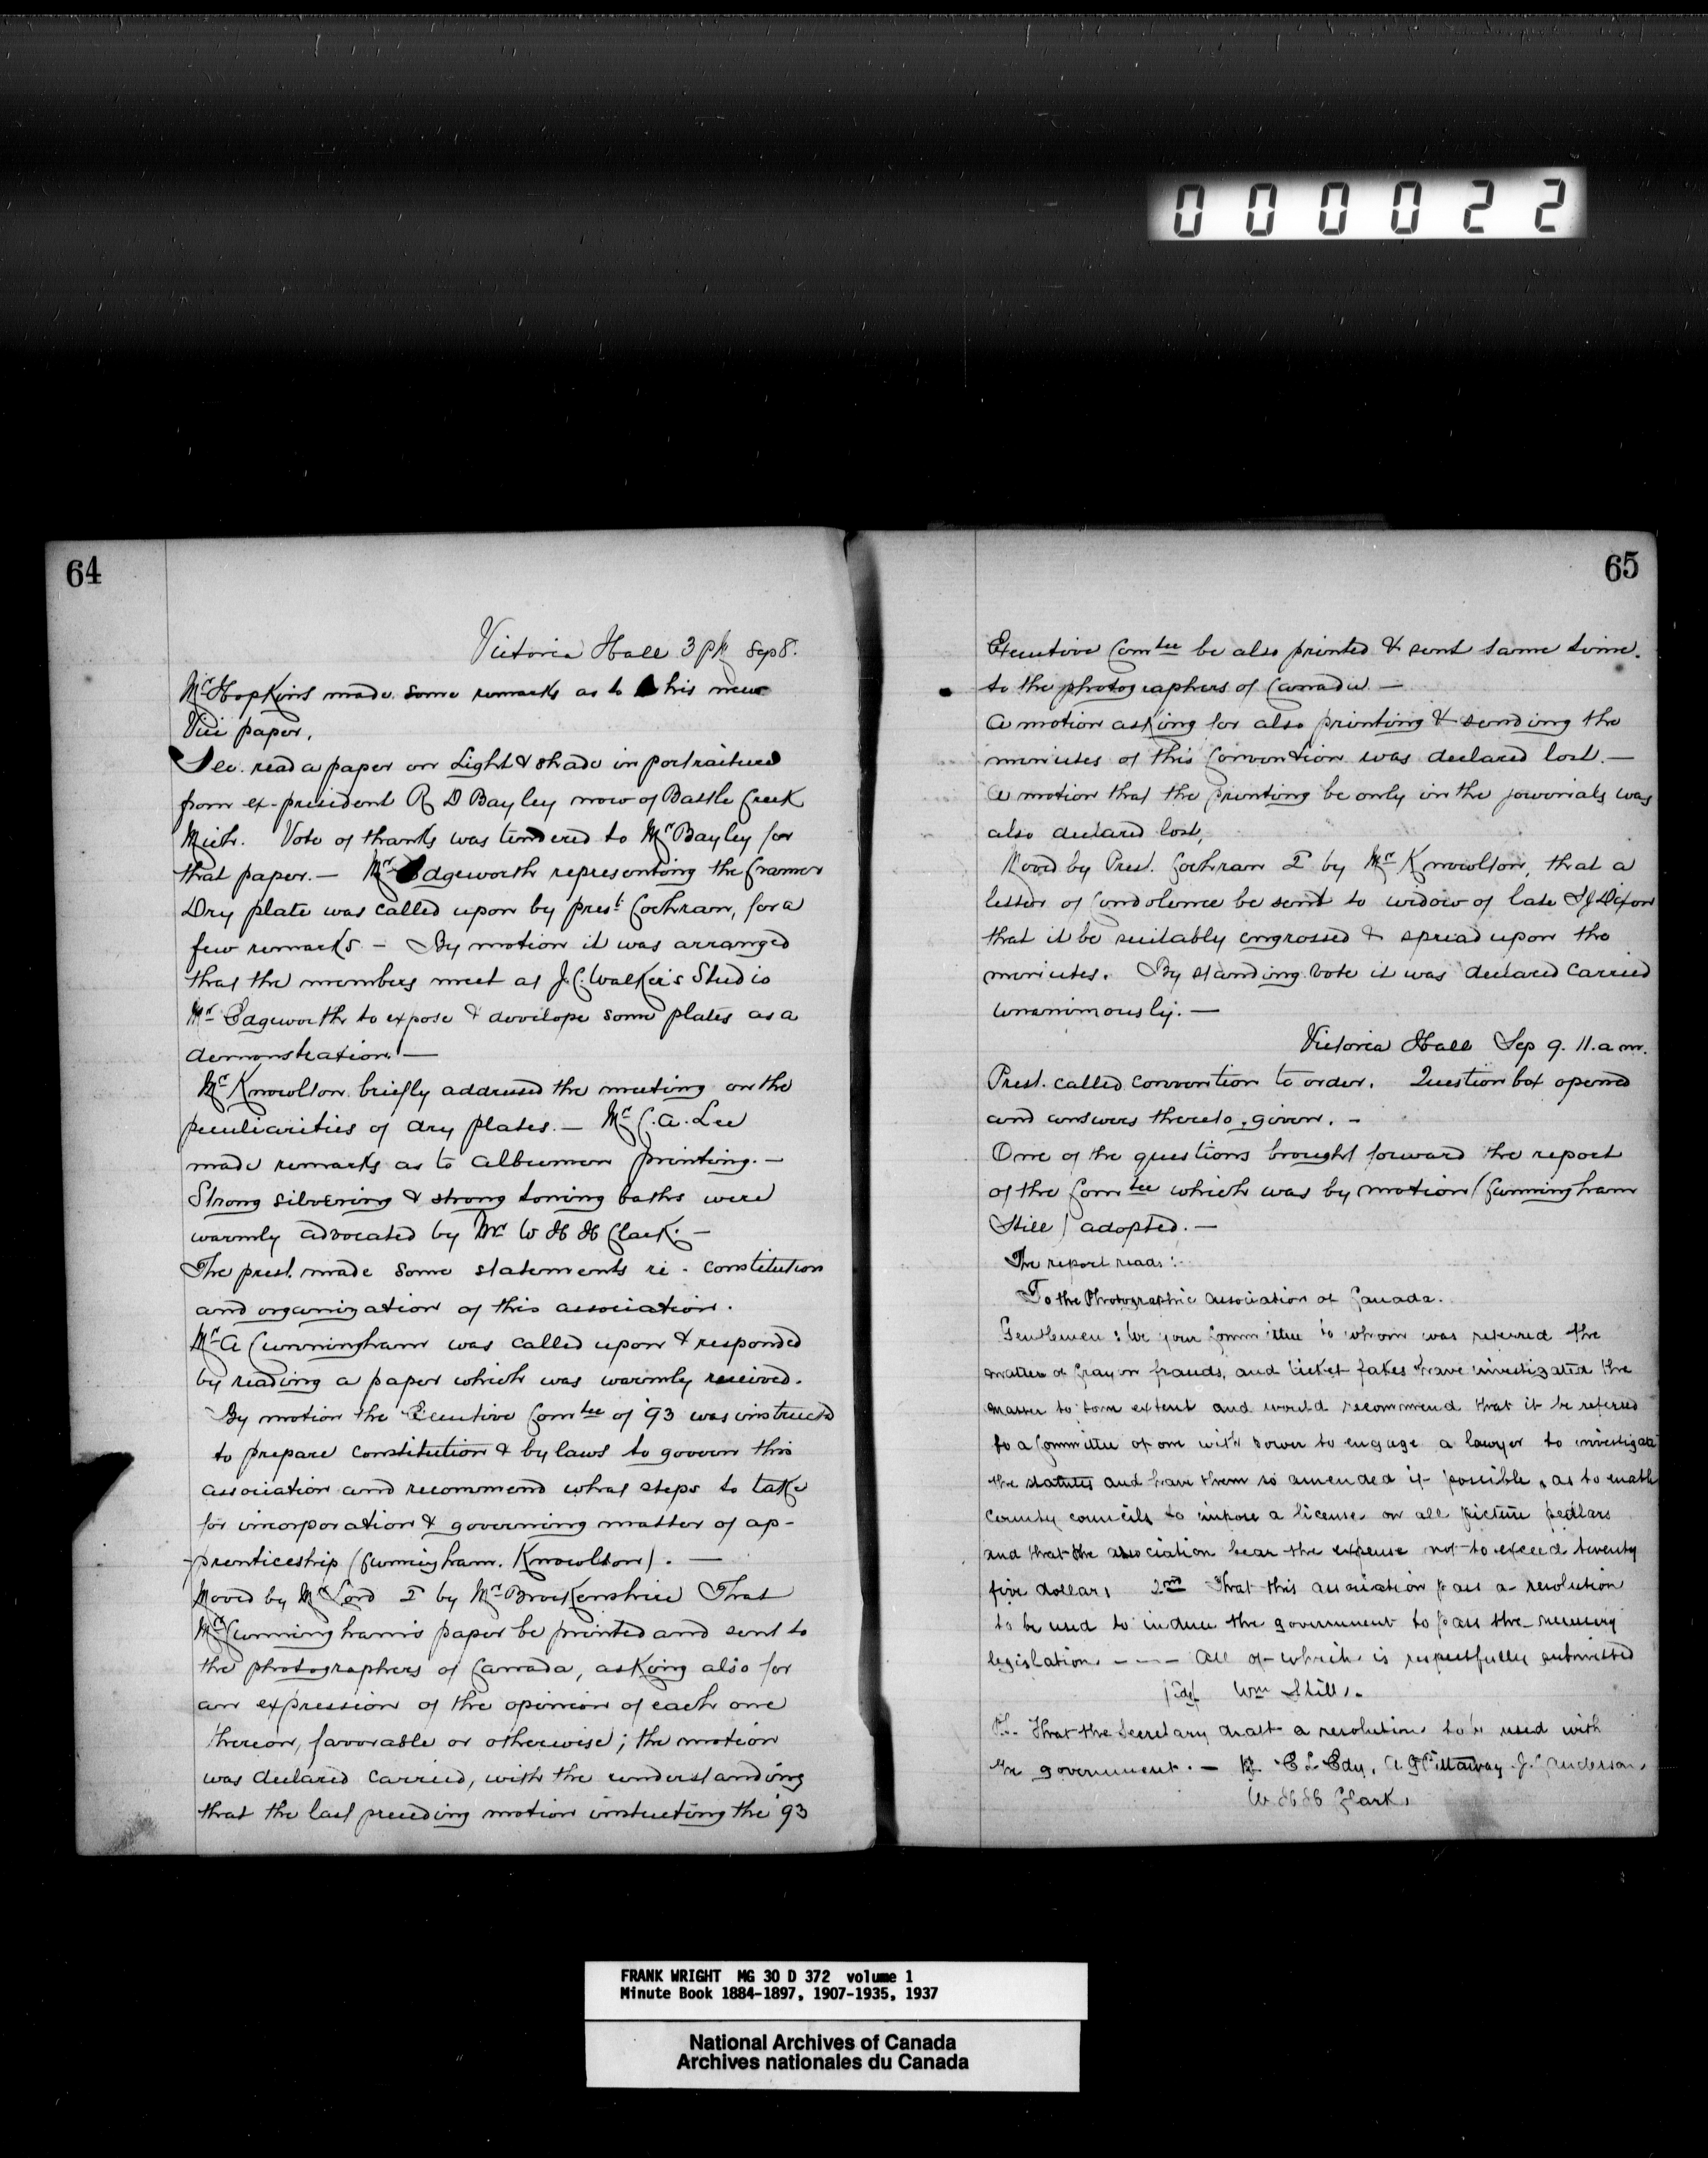 000022
64
Victoria Hall 3 PM Sep 8.
Mr Hopkins made some remarks as to his new
Vici paper.
Sec. read a paper on Light & shade in portraiture
from ex-president R D Bayley now of Battle Creek
Mich. Vote of thanks was tendered to Mr Bayley for
that paper. — Mr Edgeworth representing the Cramer
Dry plate was called upon by prest Cochran, for a
few remarks — By motion it was arranged
that the members meet at J.C. Walker's Studio
Mr Edgeworth to expose & develope some plates as a
demonstration. —
Mr Knowlton briefly addressed the meeting on the
peculiarities of dry plates. — Mr C.A. Lee
made remarks as to albumen printing. —
Strong silvering & strong toning baths were
warmly advocated by Mr W H H Clark. —
The prest. made some statements re. constitution
and organization of this association.
Mr A Cunningham was called upon & responded
by reading a paper which was warmly received.
By motion the Executive Comtee of 93 was instructed
to prepare constitution & by laws to govern this
association and recommend what steps to take
for incorporation & governing matter of ap-
prenticeship (Cunningham. Knowlton). —
Moved by Mr Lord 2d by Mr Brockenshire That
Mr Cunningham's paper be printed and sent to
the photographers of Canada, asking also for
an expression of the opinion of each one
thereon, favorable or otherwise; the motion
was declared carried, with the understanding
that the last preceding motion instructing the '93
65
Executive Comtee be also printed & sent same time.
to the photographers of Canada —
A motion asking for also printing & sending the
minutes of this Convention was declared lost. —
A motion that the printing be only in the journals was
also declared lost,
Moved by Prest. Cochran 2d by Mr Knowlton, that a
letter of condolence be sent to widow of late S J Dixon
that it be suitably engrossed & spread upon the
minutes. By standing vote it was declared carried
unanimously. —
Victoria Hall Sep 9. 11. a m.
Prest. called convention to order. Question box opened
and answers thereto given. —
One of the questions brought forward the report
of the Comtee which was by motion (Cunningham
Still) adopted. —
The report reads:
To the Photographic Association of Canada.
Gentlemen: We your Committee to whom was referred the
matter of Crayon frauds, and ticket fakes have investigated the
matter to some extent and would recommend that it be referred
to a Committee of one with power to engage a lawyer to investigate
the statutes and have them so amended if possible, as to enable
County councils to impose a license on all picture pedlars
and that the association bear the expense not to exceed twenty
five dollars 2nd That this association pass a resolution
to be used to induce the government to pass the necessary
legislation. — — — All of which is respectfully submitted
Wm Still.
That the Secretary draft a resolution to be used with
the government. — E L Edy. A G Pittaway J. C Anderson,
W H H Clark.
FRANK WRIGHT MG 30 D 372 volume 1
Minute Book 1884-1897, 1907-1935, 1937
National Archives of Canada
Archives nationales du Canada